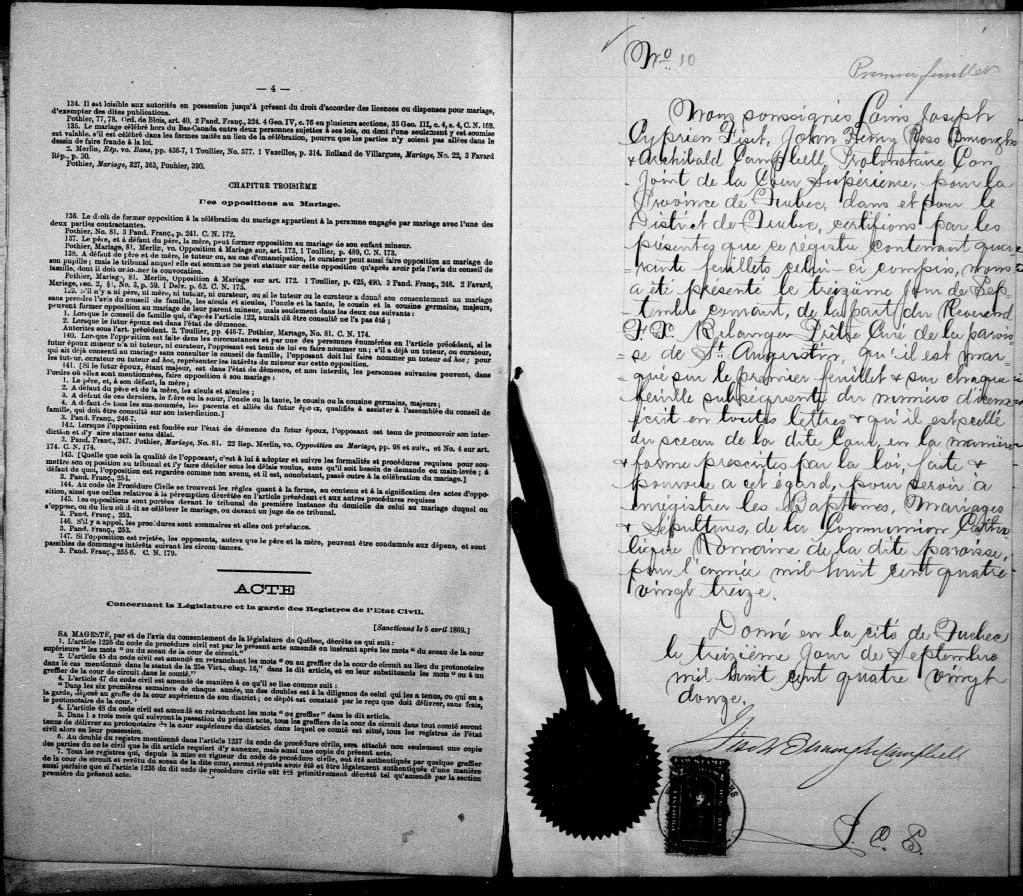 — 4 —
134. Il est loisible aux autorités en possession jusqu'à présent du droit d'accorder des licences ou dispenses pour mariage,
d'exempter des dites publications.
Pothier, 77, 78. Ord. de Blois, art. 40. 2 Pand. Franç., 324. 4 Geo. IV, c. 76 en plusieurs sections. 35 Geo. III, c. 4, s. 4, C. N. 169.
135. Le mariage célébré hors du Bas-Canada entre deux personnes sujettes à ses lois, ou dont l'une seulement y est soumise
est valable, s'il est célébré dans les formes usités au lieu de la célébration, pourvu que les parties n'y soient pas allées dans le
dessein de faire fraude à la loi.
2. Merlin, Rép. vo. Bans, pp. 436-7, 1 Toullier, No. 577. 1 Vazeilles, p. 314. Rolland de Villargues, Mariage, No. 22, 3 Favard
Rép., p. 30.
Pothier, Mariage, 327, 363, Pouhier, 390.
CHAPITRE TROISIÈME
Des oppositions au Mariage.
136. Le droit de former opposition à la célébration du mariage appartient à la personne engagée par mariage avec l'une des
deux parties contractantes.
Pothier, No. 81. 3 Pand. Franç., p. 241. C. N. 172.
137. Le père, et à défaut du père, la mère, peut former opposition au mariage de son enfant mineur.
Pothier, Mariage, 81. Merlin, vo. Opposition à Mariage sur art. 173, 1 Toullier, p. 489, C. N. 173.
138. A défaut de père et de mère, le tuteur ou, au cas d'émancipation, le curateur peut aussi faire opposition au mariage de
son pupille; mais le tribunal auquel elle est soumise ne peut statuer sur cette opposition qu'après avoir pris l'avis du conseil de
famille, dont il doit ordonner la convocation.
Pothier, Mariage, 81. Merlin, Opposition à Mariage sur art. 172. 1 Toullier, p. 425, 490. 3 Pand. Franç., 248. 2 Favard,
Mariage, sec. 2, §1, No. 3, p. 59. 1 Delv. p. 62. C. N. 175.
139. S'il n'y a ni père, ni mère, ni tuteur, ni curateur, ou si le tuteur ou le curateur a donné son consentement au mariage
sans prendre l'avis du conseil de famille, les aïeuls et aïeules, l'oncle et la tante, le cousin et la cousine germains, majeurs,
peuvent former opposition au mariage de leur parent mineur, mais seulement dans les deux cas suivants :
1. Lorsque le conseil de famille qui, d'après l'article 122, aurait dû être consulté ne l'a pas été ;
2. Lorsque le futur époux est dans l'état de démence.
Autorités sous l'art. précédent. 2. Toullier, pp. 446-7. Pothier, Mariage, No. 81. C. N. 174.
140. Lorsque l'opposition est faite dans les circonstances et par une des personnes énumérées en l'article précédent, si le
futur époux mineur n'a ni tuteur, ni curateur, l'opposant est tenu de lui en faire nommer un; s'il a déjà un tuteur, ou curateur,
qui ait déjà consenti au mariage sans consulter le conseil de famille, l'opposant doit lui faire nommer un tuteur ad hoc; pour
les tuteur, curateur ou tuteur ad hoc, représenter les intérêts du mineur sur cette opposition.
141. [Si le futur époux, étant majeur, est dans l'état de démence, et non interdit, les personnes suivantes peuvent, dans
l'ordre où elles sont mentionnées, faire opposition à son mariage :
1. Le père, et, à son défaut, la mère;
2. A défaut du père et de la mère, les aïeuls et aïeules;
3. A défaut de ces derniers, le frère ou la sœur, l'oncle ou la tante, le cousin ou la cousine germains, majeurs;
4. A défaut de tous les sus-nommés, les parents et alliés du futur époux, qualifiés à assister à l'assemblée du conseil de
famille, qui doit être consulté sur son interdiction.]
3. Pand. Franç., 246-7.
142. Lorsque l'opposition est fondée sur l'état de démence du futur époux, l'opposant est tenu de promouvoir son inter-
diction et d'y faire statuer sans délai.
3. Pand. Franç., 247. Pothier, Mariage, No. 81. 22 Rep. Merlin, vo. Opposition au Mariage, pp. 98 et suiv., et No. 4 sur art.
174. C. N. 174.
143. [Quelle que soit la qualité de l'opposant, c'est à lui à adopter et suivre les formalités et procédures requises pour sou-
mettre son opposition au tribunal et l'y faire décider sous les délais voulus, sans qu'il soit besoin de demande en main-levée; à
défaut de quoi, l'opposition est regardée comme non avenu, et il est, nonobstant, passé outre à la célébration du mariage.]
3. Pand. Franç., 254.
144. Au code de Procédure Civile se trouvent les règles quant à la forme, au contenu et à la signification des actes d'oppo-
sition, ainsi que celles relatives à la péremption décrétée en l'article précédent et aux autres procédures requises
145. Les oppositions sont portées devant le tribunal de première instance du domicile de celui au mariage duquel on
s'oppose, ou du lieu où doit se célébrer le mariage, ou devant un juge de ce tribunal.
3. Pand. Franç., 253.
146. S'il y a appel, les procédures sont sommaires et elles ont préséance.
3. Pand. Franç., 253.
147. Si l'opposition est rejetée, les opposants, autres que le père et la mère, peuvent être condamnés aux dépens, et sont
passibles de dommages intérêts suivant les circonstances.
3. Pand. Franç., 255-6. C. N. 179.
ACTE
Concernant la Législature et la garde des Registres de l'Etat Civil.
[Sanctionné le 5 avril 1869.]
SA MAGESTÉ, par et de l'avis du consentement de la législature de Québec, décrète ce qui suit :
1. L'article 1236 du code de procédure civil est par le présent acte amendé en insérant après les mots " du sceau de la cour
supérieure " les mots " ou du sceau de la cour de circuit."
2. L'article 45 du code civil est amendé en retranchant les mots " ou au greffier de la cour de circuit au lieu du protonotaire
dans le cas mentionné dans le statut de la 25e Vict., chap. 16," dans le dit article, et en leur substituants les mots " ou à un
greffier de la cour de circuit dans le comté."
4. L'article 47 du code civil est amendé de manière à ce qu'il se lise comme suit :
" Dans les six premières semaines de chaque année, un des doubles est à la diligence de celui qui les a tenus, ou qui en a
la garde, déposé au greffe de la cour supérieure de son district; ce dépôt est constaté par le reçu que doit délivrer, sans frais,
le protonotaire de la cour."
4. L'article 48 du code civil est amendé en retranchant les mots " ou greffier " dans le dit article.
5. Dans les trois mois qui suivront la passation du présent acte, tous les greffiers de la cour de circuit dans tout comté seront
tenus de délivrer au protonotaire de la cour supérieure du district dans lequel ce comté est situé, tous les registres de l'état
civil alors en leur possession.
6. Au double du registre mentionné dans l'article 1237 du code de procédure civile, sera attaché non seulement une copie
des parties du code civil que le dit article requiert d'y annexer, mais aussi une copie du présent acte.
7. Tous les registres qui, depuis la mise en vigueur du code de procédure civile, ont été authentiqués par quelque greffier
de la cour de circuit et revêtu du sceau de la dite cour, seront réputés avoir été et être légalement authentiqués d'une manière
aussi parfaite que si l'article 1236 du dit code de procédure civile eût été primitivement décrété tel qu'amendé par la section
première du présent acte.
No 10
Premier feuillet
Nous soussignés Louis Joseph
Cyprien Fiset, John Henry Ross Burroughs
& Archibald Campbell Protonotaire Con
joint de la Cour Supérieure, pour la
Province de Quebec, dans et pour le
District de Quebec, certifions par les
présentes que ce registre contenant qua-
rante feuillets celui-ci compris, nous
a été présenté le treizième jour de Sep-
tembre courant, de la part du Reverend
F. X. Belanger Prêtre Curé de la parois-
se de St. Augustin, qu'il est mar-
qué sur le premier feuillet & sur chaque
feuille subsequent du numéro d'icelui
écrit en toutes lettres & qu'il est scellé
du sceau de la dite Cour, en la manière
& forme prescrites par la loi, faite &
pourvue à cet égard, pour servir à
enrégistrer les Baptêmes, Mariages
& Sépultures, de la Communion Catho
lique Romaine de la dite paroisse,
pour l'année mil huit cent quatre
vingt treize.
Donné en la cité de Quebec
le treizième jour de Septembre
mil huit cent quatre vingt
douze.
Fiset Burroughs Campbell
P. C. S.